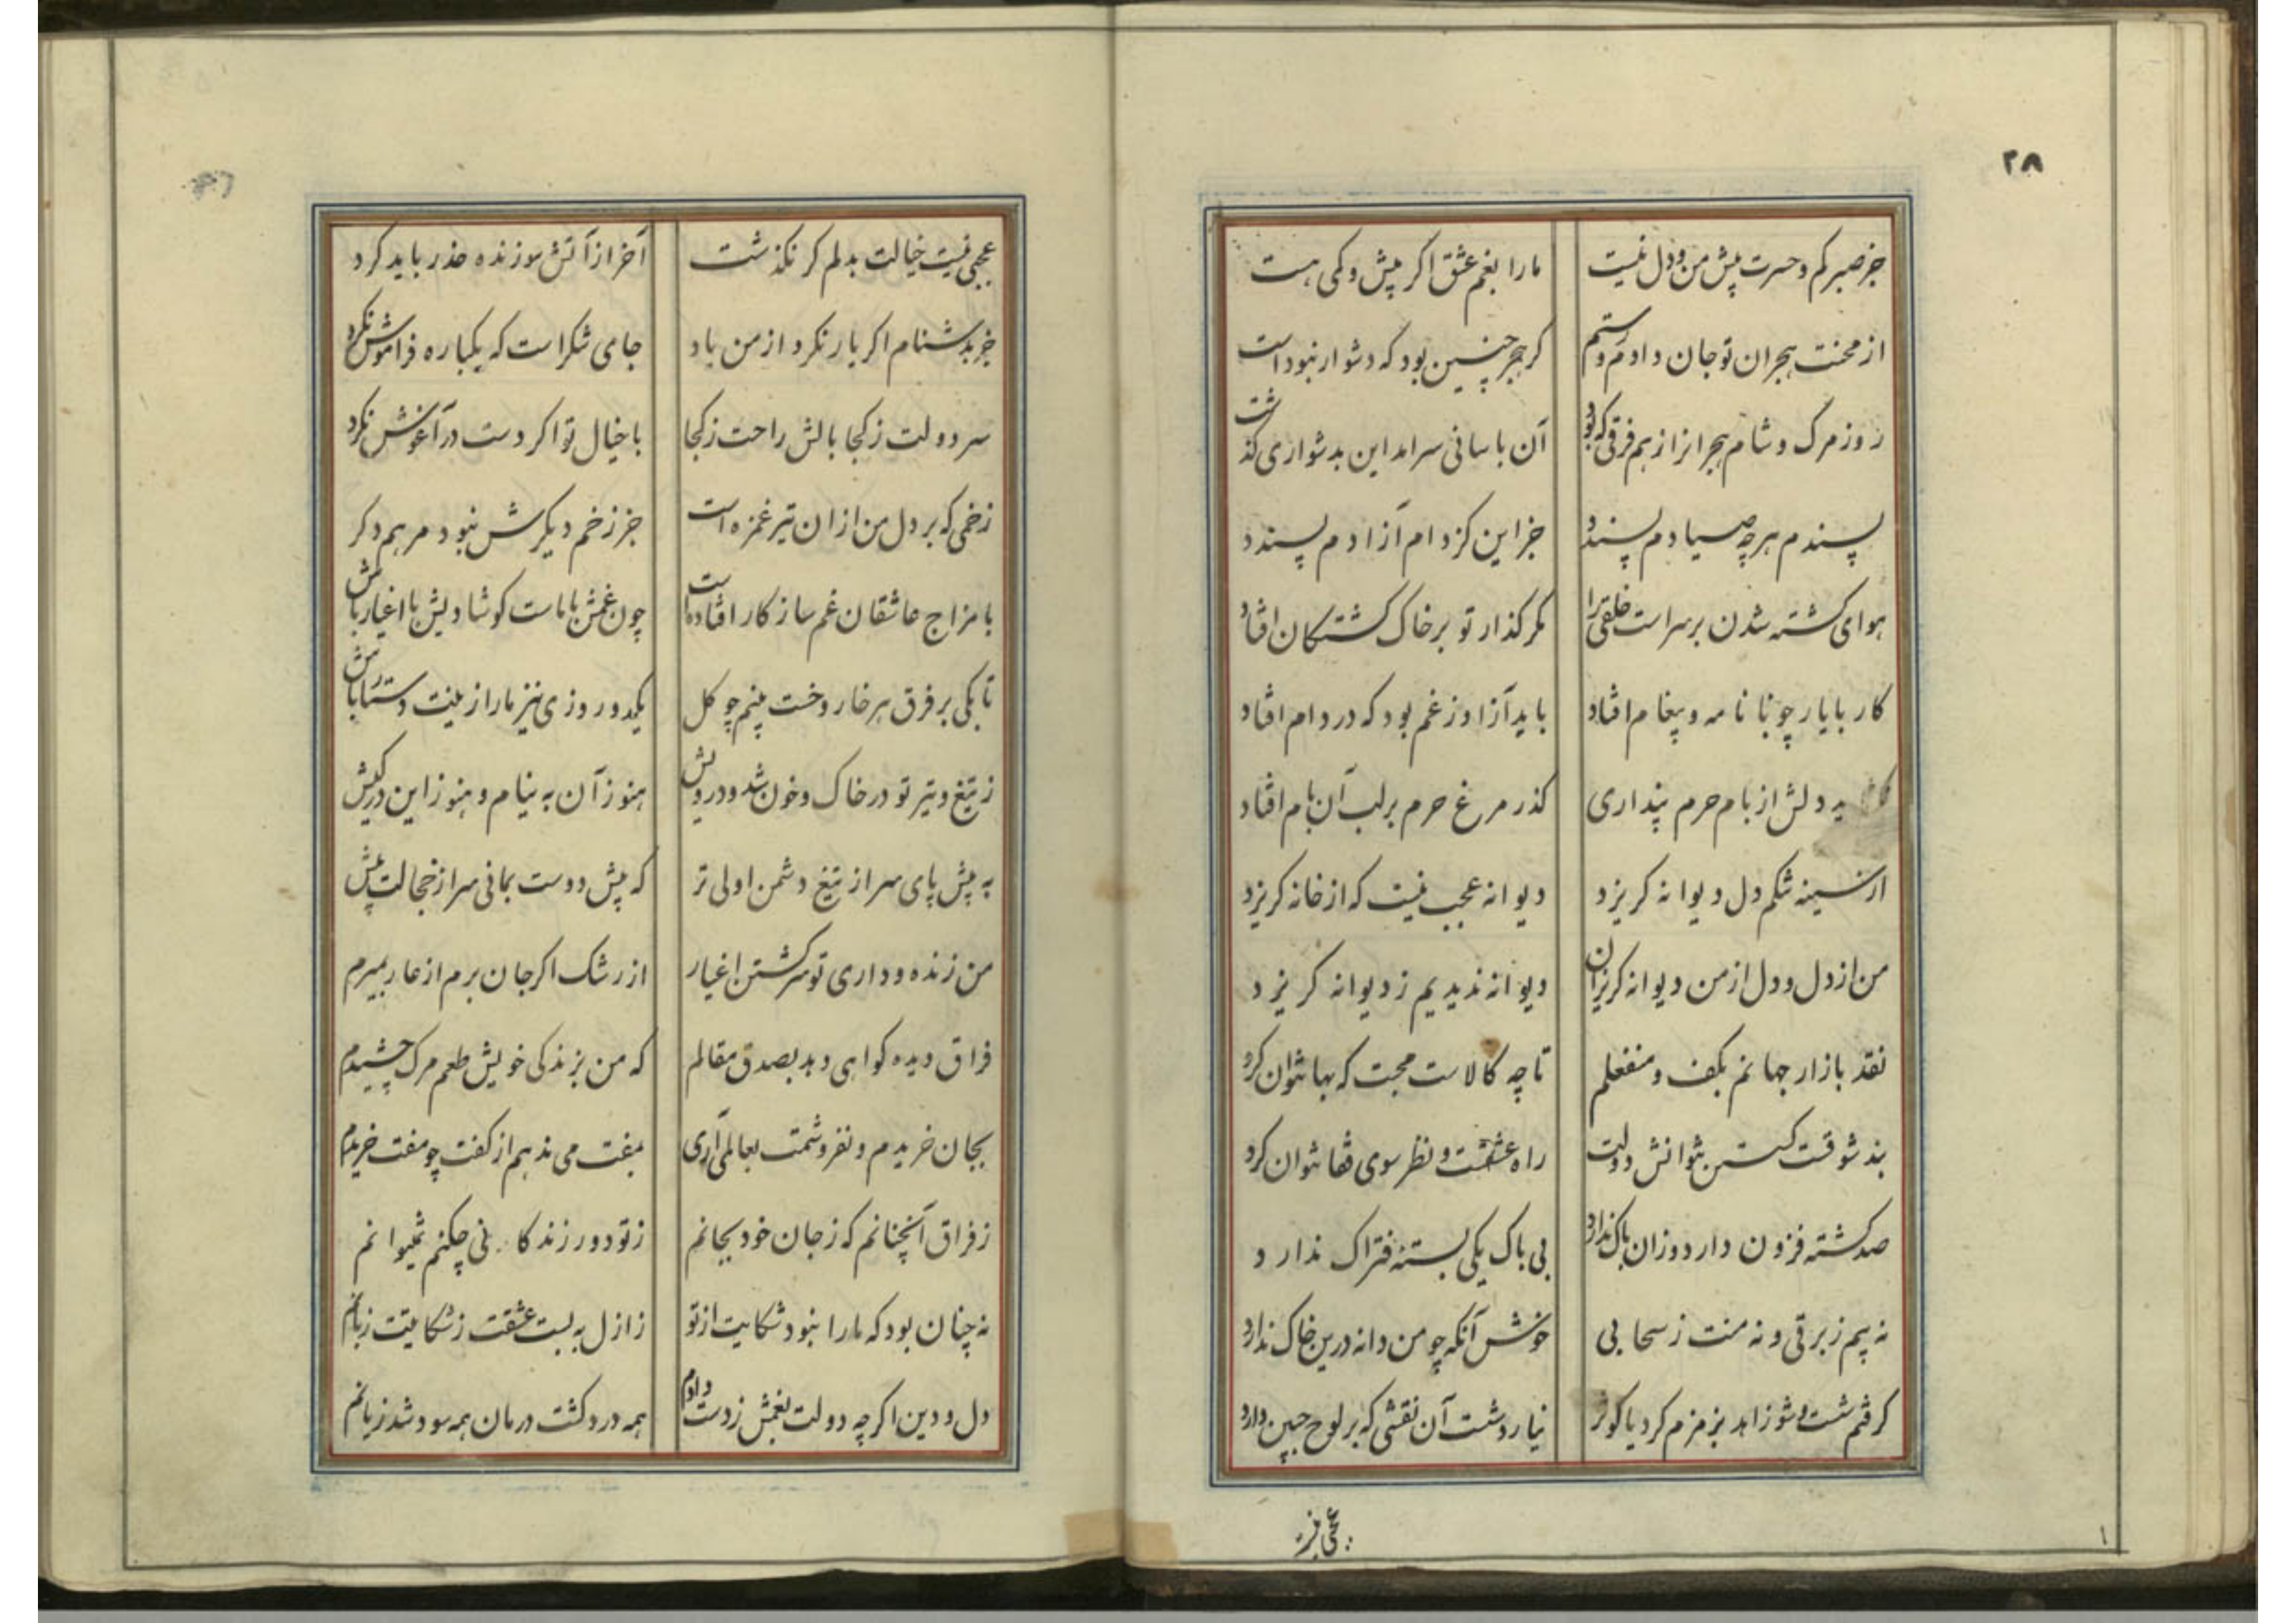 ۲۸
جز صبر کم و حسرت پیش من و دل نیست مارا بغم عشق اکر پیش و کمی هست
از محنت هجران تو جان دادم و رستم کر هجر چنین بود که دشوار نبود است
روز مرک و شام هجرانرا ز هم فرقی که بود آن باسانی سرامد این بدشواری کذشت
پسندم هر چه صیادم پسندد جز این کز دام آزادم پسندد
هوای کشته شدن بر سر است خلقی را مکر کذار تو بر خاک کشتکان افتاد
کار با یار چو با نامه و پیغام افتاد باید آزاد ز غم بود که در دام افتاد
دلش از بام حرم پنداری کذر مرغ حرم بر لب آن بام افتاد
از سینه تنکم دل دیوانه کریزد دیوانه عجب نیست که از خانه کریزد
من از دل و دل از من دیوانه کریزان دیوانه ندیدیم ز دیوانه کریزد
نقد بازار جهانم بکف و منفعلم تا چه کالاست محبت که بها نتوان کرد
بند شوقت کسستن نتوانش دولت راه عشقست و نظر سوی قفا نتوان کرد
صد کشته فزون دارد وزان باک ندارد بی باک یکی بستهٔ فتراک ندارد
نه بیم ز برقی و نه منت ز سحابی خوش آنکه چو من دانه درین خاک ندارد
کرفتم شست و شو زاهد بزمزم کرد یا کوثر نیارد شست آن نقشی که بر لوح جبین دارد
عجبی نیست
عجبی نیست خیالت بدلم کر نکذشت آخر از آتش سوزنده حذر باید کرد
جز بدشنام اکر یار نکرد از من یاد جای شکر است که یکباره فراموش نکرد
سر دولت ز کجا بالش راحت ز کجا با خیال تو اکر دست در آغوش نکرد
زخمی که بر دل من از ان تیر غمزه است جز زخم دیکرش نبود مرهم دکر
با مزاج عاشقان غم سازکار افتاده است چون غمش با ماست کو شادیش با اغیار باش
تا بکی بر فرق هر خار و خست بینم چو کل یکدو روزی نیز مارا زینت دستار باش
ز تیغ و تیر تو در خاک و خون شد و در دلش هنوز آن به نیام و هنوز این در کیش
به پیش پای سر از تیغ دشمن اولی تر که پیش دوست بمانی سر از خجالت پیش
من زنده و داری تو سر کشتن اغیار از رشک اکر جان برم از عار بمیرم
فراق دیده کواهی دهد بصدق مقالم که من بزندکی خویش طعم مرک چشیدم
بجان خریدم و نفروشمت بعالمی آری بمفت می ندهم از کفت چو مفت خریدم
ز فراق آنچنانم که ز جان خود بجانم ز تو دور زندکانی چکنم نمیتوانم
نه چنان بود که مارا نبود شکایت از تو ز ازل به بست عشقت ز شکایتت زبانم
دل و دین اکر چه دولت بغمش ز دست دادم همه درد کشت درمان همه سود شد زیانم